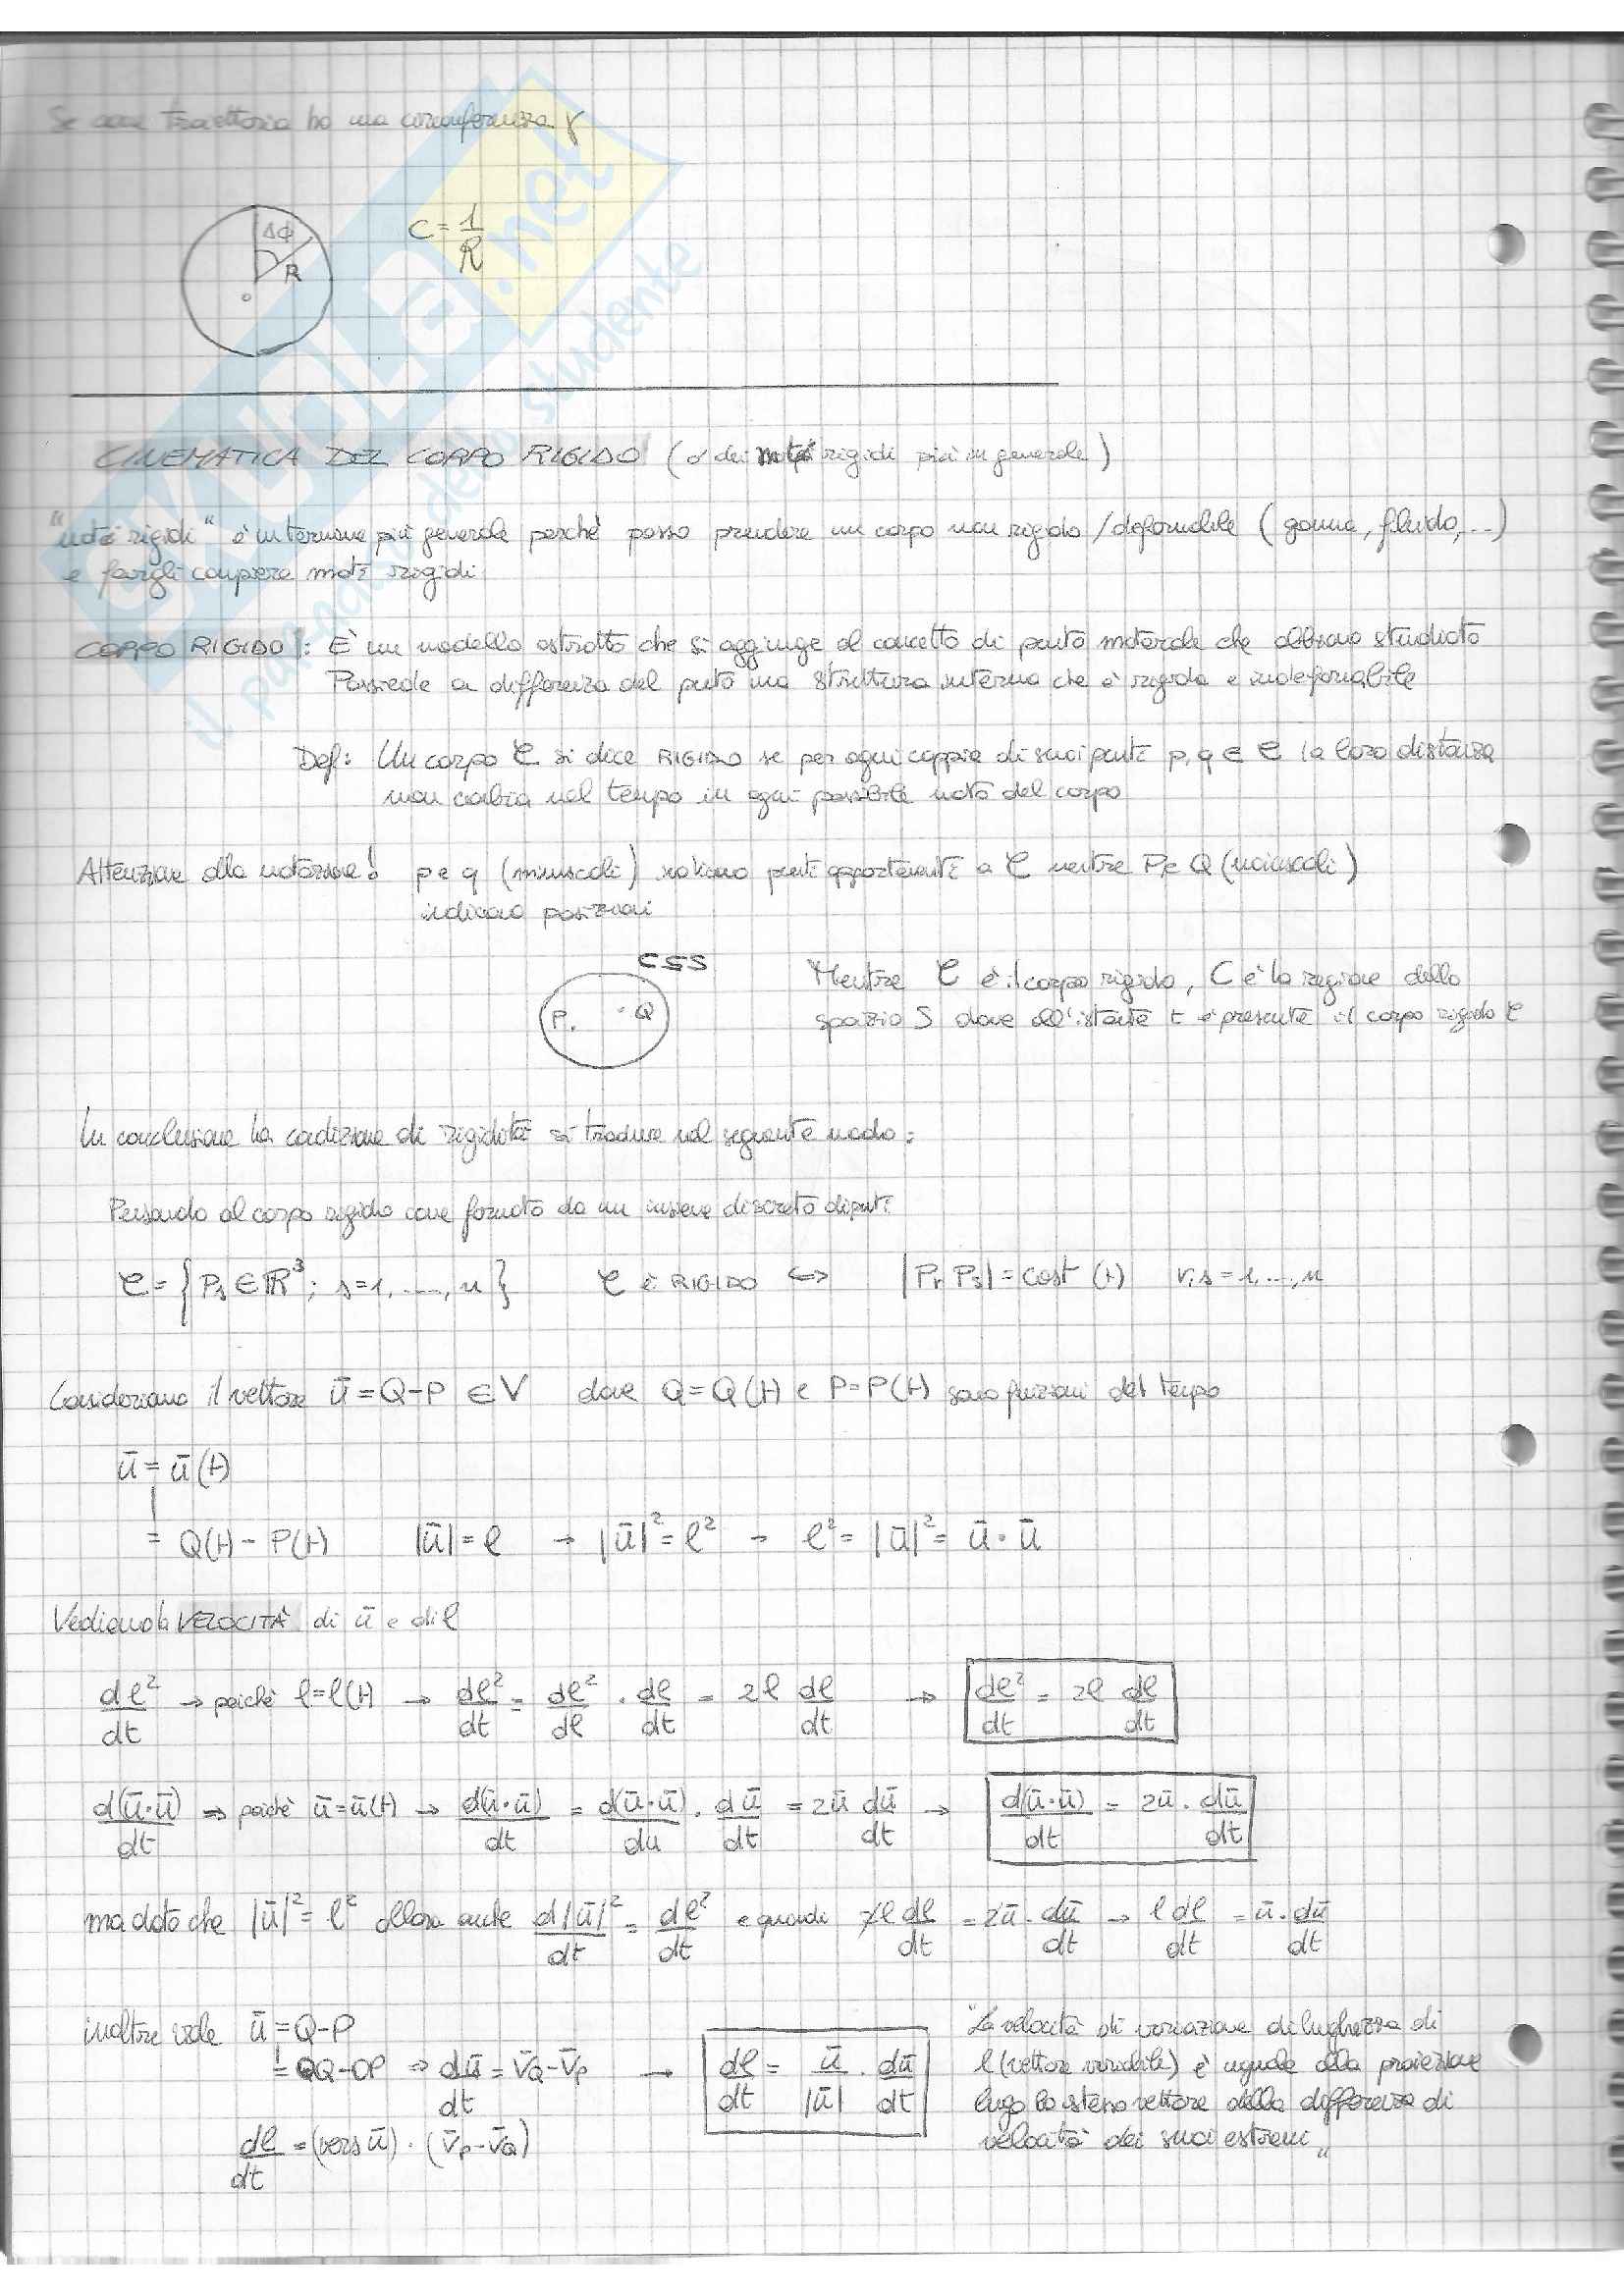 Se come traiettoria ho una circonferenza γ
Δϕ
R
o
C = 1/R
CINEMATICA DEL CORPO RIGIDO (o dei moti rigidi più in generale)
"moti rigidi" è in termine più generale perchè posso prendere un corpo non rigido/deformabile (gomma, fluido, ...)
e fargli compiere moti rigidi
CORPO RIGIDO: E' un modello astratto che si aggiunge al concetto di punto materiale che abbiamo studiato
Possiede a differenza del punto una struttura interna che è rigida e indeformabile
Def: Un corpo C si dice RIGIDO se per ogni coppia di suoi punti p, q ∈ C la loro distanza
non cambia nel tempo in ogni possibile moto del corpo
Attenzione alla notazione! p e q (minuscoli) indicano punti appartenenti a C mentre P e Q (maiuscoli)
indicano posizioni
C⊆S
P. · Q
Mentre C è il corpo rigido, C è la regione dello
spazio S dove all'istante t è presente il corpo rigido C
In conclusione la condizione di rigidità si traduce nel seguente modo:
Pensando al corpo rigido come formato da un insieme discreto di punti
C = {Ps ∈ ℝ³; s=1, ..., n} C è RIGIDO ⇔ |Pr Ps| = cost (t) r,s = 1, ..., n
Consideriamo il vettore ū = Q-P ∈ V dove Q=Q(t) e P=P(t) sono funzioni del tempo
ū = ū(t)
= Q(t) - P(t) |ū| = ℓ → |ū|² = ℓ² → ℓ² = |ū|² = ū · ū
Vediamo la VELOCITÀ di ū e di ℓ
dℓ²/dt → poichè ℓ=ℓ(t) → dℓ²/dt = dℓ²/dℓ · dℓ/dt = 2ℓ dℓ/dt → dℓ²/dt = 2ℓ dℓ/dt
d(ū·ū)/dt → poichè ū=ū(t) → d(ū·ū)/dt = d(ū·ū)/du · dū/dt = 2ū dū/dt → d(ū·ū)/dt = 2ū · dū/dt
ma dato che |ū|² = ℓ² allora anche d|ū|²/dt = dℓ²/dt e quindi 2ℓ dℓ/dt = 2ū · dū/dt → ℓ dℓ/dt = ū · dū/dt
inoltre vale ū = Q-P
= OQ-OP ⇒ dū/dt = v̄Q - v̄P → dℓ/dt = ū/|ū| · dū/dt
dℓ/dt = (vers ū) · (v̄P - v̄Q)
"La velocità di variazione di lunghezza di
ℓ (vettore variabile) è uguale alla proiezione
lungo lo stesso vettore della differenza di
velocità dei suoi estremi"
SKUOLA.net
il paradiso dello studente